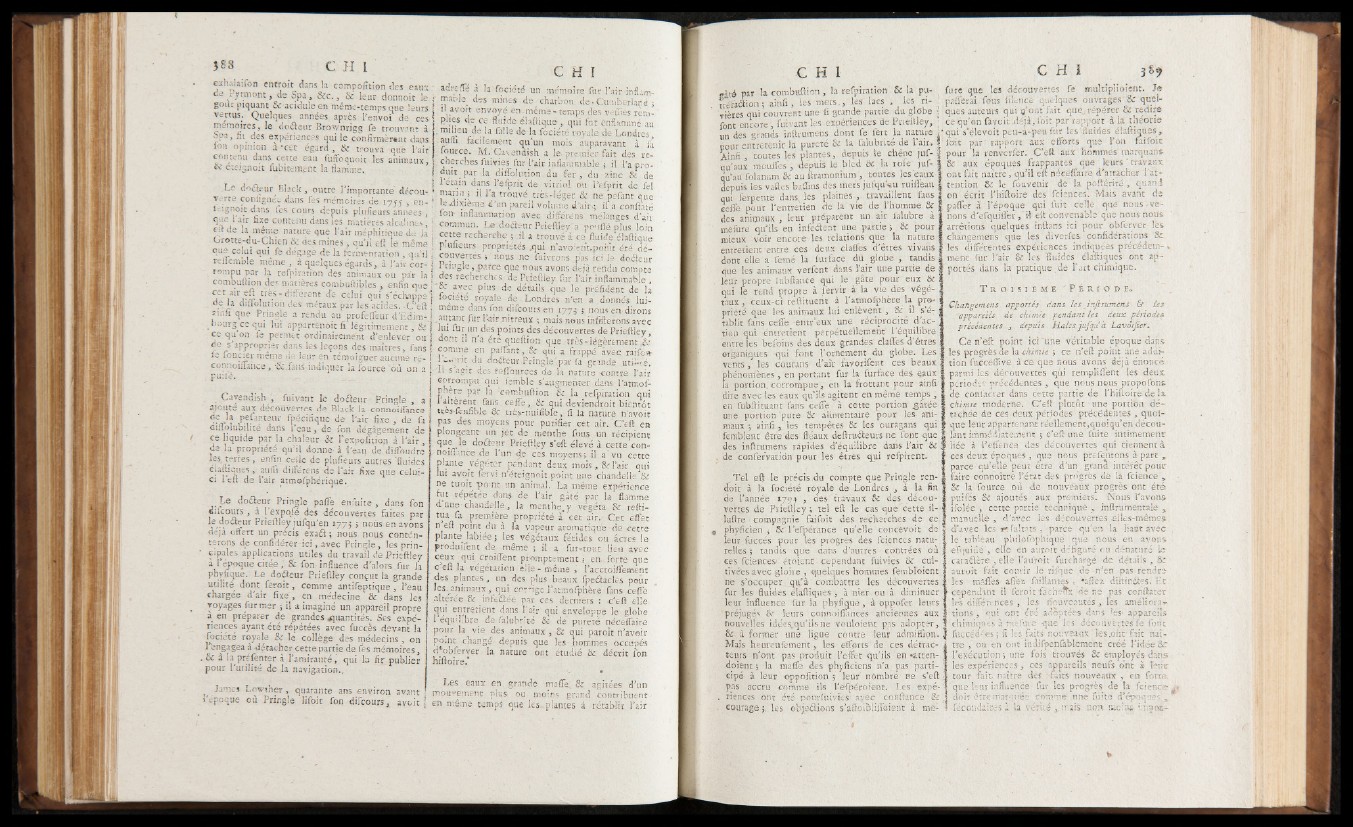 388 C H I
exhalaison entroit dans la composition des eaux
de Pyrmont, de Spa, &c., & leur donnoit le
goût piquant & acidule en même-temps que leurs
vertus. Quelques années après l'envoi de ces
mémoires, le docteur Brownrigg se trouvant à
Spa, fit des expériences qui le confirmèrent dans
son opinion à cet égard, & trouva que l'air
contenu dans cette eau suffoquoit les animaux,
& éteignoit subitement la flamme.
Le docteur Black, outre l'importante décou-
verte consignée dans les mémoires de 1755, en-
seignoit dans ses cours depuis plusieurs années,
que l'air fixe contenu dans les matières alcalines,
est de la même nature que l'air méphitique de la
Grotte-du-Chien & des mines, qu'il est le même
que celui qui se dégage de la fermentation, qu'il
ressemble même, à quelques égards, à l'air cor-
rompu par la respiration des animaux ou par la
combustion des matières combustibles, enfin que
cet air est très-différent de celui qui s'échappe
de la dissolution des métaux par les acides. C'est
ainsi que Pringle a rendu au professeur d'Edim-
bourg ce qui lui appartenoit si légitimement, &
ce qu'on se permet ordinairement d'enlever ou
de s'approprier dans les leçons des maîtres, sans
se soucier même de leur en témoigner aucune re-
connoissance, & sans indiquer la source où on a
puisé.
Cavendish, suivant le docteur Pringle, a
ajouté aux découvertes de Black la connoissance
de la pesanteur spécifique de l'air fixe, de sa
dissolubilité dans l'eau, de son dégagement de
ce liquide par la chaleur & l'exposition à l'air,
de la propriété qu'il donne à l'eau de dissoudre
les terres, enfin celle de plusieurs autres fluides
élastiques, aussi différens de l'air fixe que celui-
ci l'est de l'air atmosphérique.
Le docteur Pringle passe ensuite, dans son
discours, à l'exposé des découvertes faites par
le docteur Priestley jusqu'en 1773; nous en avons
déjà offert un précis exact; nous nous conten-
terons de considérer ici, avec Pringle, les prin-
cipales applications utiles du travail de Priestley
à l'époque citée, & son influence d'alors sur la
physique. Le docteur Priestley conçut la grande
utilité dont seroit, comme antiseptique, l'eau
chargée d'air fixe, en médecine & dans les
voyages sur mer; il a imaginé un appareil propre
à en préparer de grandes quantités. Ses expé-
riences ayant été répétées avec succès devant la
société royale & le collège des médecins, on
l'engagea à détacher cette partie de ses mémoires,
& à la présenter à l'amirauté, qui la fit publier
pour l'utilité de la navigation.
James Lowther, quarante ans environ avant
l'époque où Pringle lisoit son discours, avoit
C H I
adressé à la société un mémoire sur l'air inflam-
mable des mines de charbon de Cumberland;
il avoit envoyé en même-temps des vessies rem-
plies de ce fluide élastique, qui fut enflammé au
milieu de la salle de la société royale de Londres,
aussi facilement qu'un mois auparavant à la
source. M. Cavendish a le premier fait des re-
cherches suivies sur l'air inflammable; il l'a pro-
duit par la dissolution du fer, du zinc & de
l'étain dans l'esprit de vitriol ou l'esprit de sel
marin; il l'a trouvé très-léger & ne pesant que
le dixième d'un pareil volume d'air; il a constaté
son inflammation avec différens mélanges d'air
commun. Le docteur Priestley a poussé plus loin
cette recherche; il a trouvé à ce fluide élastique
plusieurs propriétés qui n'avoient point été dé-
couvertes; nous ne suivrons pas ici le docteur
Pringle, parce que nous avons déjà rendu compte
des recherches de Priestley sur l'air inflammable,
& avec plus de détails que le président de la
société royale de Londres n'en a donnés lui-
même dans son discours en 1773; nous en dirons
autant sur l'air nitreux; mais nous insisterons avec
lui sur un des points des découvertes de Priestley,
dont il n'a été question que très-légèrement &
comme en passant, & qui a frappé avec raison
l'esprit du docteur Pringle par sa grande utilité.
Il s'agit des ressources de la nature contre l'air
corrompu qui semble s'augmenter dans l'atmos-
phère par la combustion & la respiration qui
l'altèrent sans cesse, & qui deviendroit bientôt
très-sensible & très-nuisible, si la nature n'avoit
pas des moyens pour purifier cet air. C'est en
plongeant un jet de menthe sous un récipient
que le docteur Priestley s'est élevé à cette con-
noissance de l'un de ces moyens; il a vu cette
plante végéter pendant deux mois, & l'air qui
lui avoit servi n'éteignoit point une chandelle &
ne tuoit point un animal. La même expérience
fut répétée dans de l'air gâté par la flamme
d'une chandelle, la menthe y végéta & resti-
tua sa première propriété à cet air. Cet effet
n'est point dû à la vapeur aromatique de cette
plante labiée; les végétaux fétides ou âcres le
produisent de même; il a sur-tout lieu avec
ceux qui croissent promptement; en sorte que
c'est la végétation elle-même, l'accroissement
des plantes, un des plus beaux spectacles pour
les animaux, qui corrige l'atmosphère sans cesse
altérée & infectée par ces derniers: c'est elle
qui entretient dans l'air qui enveloppe le globe
l'équilibre de salubrité & de pureté nécessaire
pour la vie des animaux, & qui paroît n'avoir
point changé depuis que les hommes occupés
d'observer la nature ont étudié & décrit son
histoire.
Les eaux en grande masse & agitées d'un
mouvement plus ou moins grand contribuent
en même temps que les plantes à rétablir l'air
C H I
gâté par la combustion, la respiration & la pu-
tréfaction; ainsi, les mers, les lacs, les ri-
vières qui couvrent une si grande partie du globe
sont encore, suivant les expériences de Priestley,
un des grands instrumens dont se sert la nature
pour entretenir la pureté & la salubrité de l'air.
Ainsi, toutes les plantes, depuis le chêne jus-
qu'aux mousses, depuis le bled & la rose jus-
qu'au solanum & au stramonium, toutes les eaux
depuis les vastes bassins des mers jusqu'au ruisseau
qui serpente dans les plaines, travaillent sans
cesse pour l'entretien de la vie de l'homme &
des animaux, leur préparent un air salubre à
mesure qu'ils en infectent une partie; & pour
mieux voir encore les relations que la nature
entretient entre ces deux classes d'êtres vivans
dont elle a semé la surface du globe, tandis
que les animaux versent dans l'air une partie de
leur propre substance qui le gâte pour eux &
qui le rend propre à servir à la vie des végé-
taux, ceux-ci restituent à l'atmosphère la pro-
priété que les animaux lui enlèvent, & il s'é-
tablit sans cesse entr'eux une réciprocité d'ac-
tion qui entretient perpétuellement l'équilibre
entre les besoins des deux grandes classes d'êtres
organiques qui font l'ornement du globe. Les
vents, les courans d'air favorisent ces beaux
phénomènes, en portant sur la surface des eaux
la portion corrompue, en la frottant pour ainsi
dire avec les eaux qu'ils agitent en même temps,
en substituant sans cesse à cette portion gâtée
une portion pure & alimentaire pour les ani-
maux; ainsi, les tempêtes & les ouragans qui
semblent être des fléaux destructeurs ne sont que
des instrumens rapides d'équilibre dans l'air &
de conservation pour les êtres qui respirent.
Tel est le précis du compte que Pringle ren-
doit à la société royale de Londres, à la fin
de l'année 1773, des travaux & des décou-
vertes de Priestley; tel est le cas que cette il-
lustre compagnie faisoit des recherches de ce
physicien, & l'espérance qu'elle concevoit de
leur succès pour les progrès des sciences natu-
relles; tandis que dans d'autres contrées où
ces sciences étoient cependant suivies & cul-
tivées avec gloire, quelques hommes sembloient
ne s'occuper qu'à combattre les découvertes
sur les fluides élastiques; à nier ou à diminuer
leur influence sur la physique, à opposer leurs
préjugés & leurs connoissances anciennes aux
nouvelles idées qu'ils ne vouloient pas adopter,
& à former une ligue contre leur admission.
Mais heureusement, les efforts de ces détrac-
teurs n'ont pas produit l'effet qu'ils en atten-
doient; la masse des physiciens n'a pas parti-
cipé à leur opposition; leur nombre ne s'est
pas accru comme ils l'espéroient. Les expé-
riences ont été poursuivies avec constance &
courage; les objections s'affoiblissoient à me-
C H I 389
sure que les découvertes se multiplioient. Je
passerai sous silence quelques ouvrages & quel-
ques auteurs qui n'ont fait que répéter & redire
ce qu'on savoit déjà, soit par rapport à la théorie
qui s'élevoit peu-à-peu sur les fluides élastiques,
soit par rapport aux efforts que l'on faisoit
pour la renverser. C'est aux hommes marquans
& aux époques frappantes que leurs travaux
ont fait naître, qu'il est nécessaire d'attacher l'at-
tention & le souvenir de la postérité, quand
on écrit l'histoire des sciences. Mais avant de
passer à l'époque qui suit celle que nous ve-
nons d'esquisser, il est convenable que nous nous
arrêtions quelques instans ici pour observer les
changemens que les diverses considérations &
les différentes expériences indiquées précédem-
ment sur l'air & les fluides élastiques ont ap-
portés dans la pratique de l'art chimique.
TROISIEME PERIODE.
Changemens apportés dans les instrumens & les
appareils de chimie pendant les deux périodes
précédentes, depuis Hales jusqu'à Lavoisier.
Ce n'est point ici une véritable époque dans
les progrès de la chimie; ce n'est point une addi-
tion successive à ce que nous avons déjà énoncé
parmi les découvertes qui remplissent les deux
périodes précédentes, que nous nous proposons
de consacrer dans cette partie de l'histoire de la
chimie moderne. C'est plutôt une portion dé-
tachée de ces deux périodes précédentes, quoi-
que leur appartenant réellement, quoiqu'en décou-
lant immédiatement; c'est une suite intimement
liée à l'essence des découvertes qui tiennent à
ces deux époques, que nous présentons à part,
parce qu'elle peut être d'un grand intérêt pour
faire connoître l'état des progrès de la science,
& la source où de nouveaux progrès ont été
puisés & ajoutés aux premiers. Nous l'avons
isolée, cette partie technique, instrumentale,
manuelle, d'avec les découvertes elles-mêmes
d'avec les résultats; parce qu'en la liant avec
le tableau philosophique que nous en avons
esquissé, elle en auroit défiguré ou dénaturé le
caractère, elle l'auroit surchargé de détails, &
auroit fait courir le risque de n'en pas rendre
les masses assez saillantes, assez distinctes. Et
cependant il seroit fâcheux de ne pas constater
les différences, les nouveautés, les améliora-
tions, qui ont été adoptées dans les appareils
chimiques à mesure que les découvertes se sont
succédées; si les faits nouveaux les ont fait naî-
tre, ou en ont indispensablement créé l'idée &
l'exécution; une fois trouvés & employés dans
les expériences, ces appareils neufs ont à leur
tour fait naître des faits nouveaux, en sorte
que leur influence sur les progrès de la science
doit être marquée comme une suite d'époques
secondaires à la vérité, mais non moins impor-